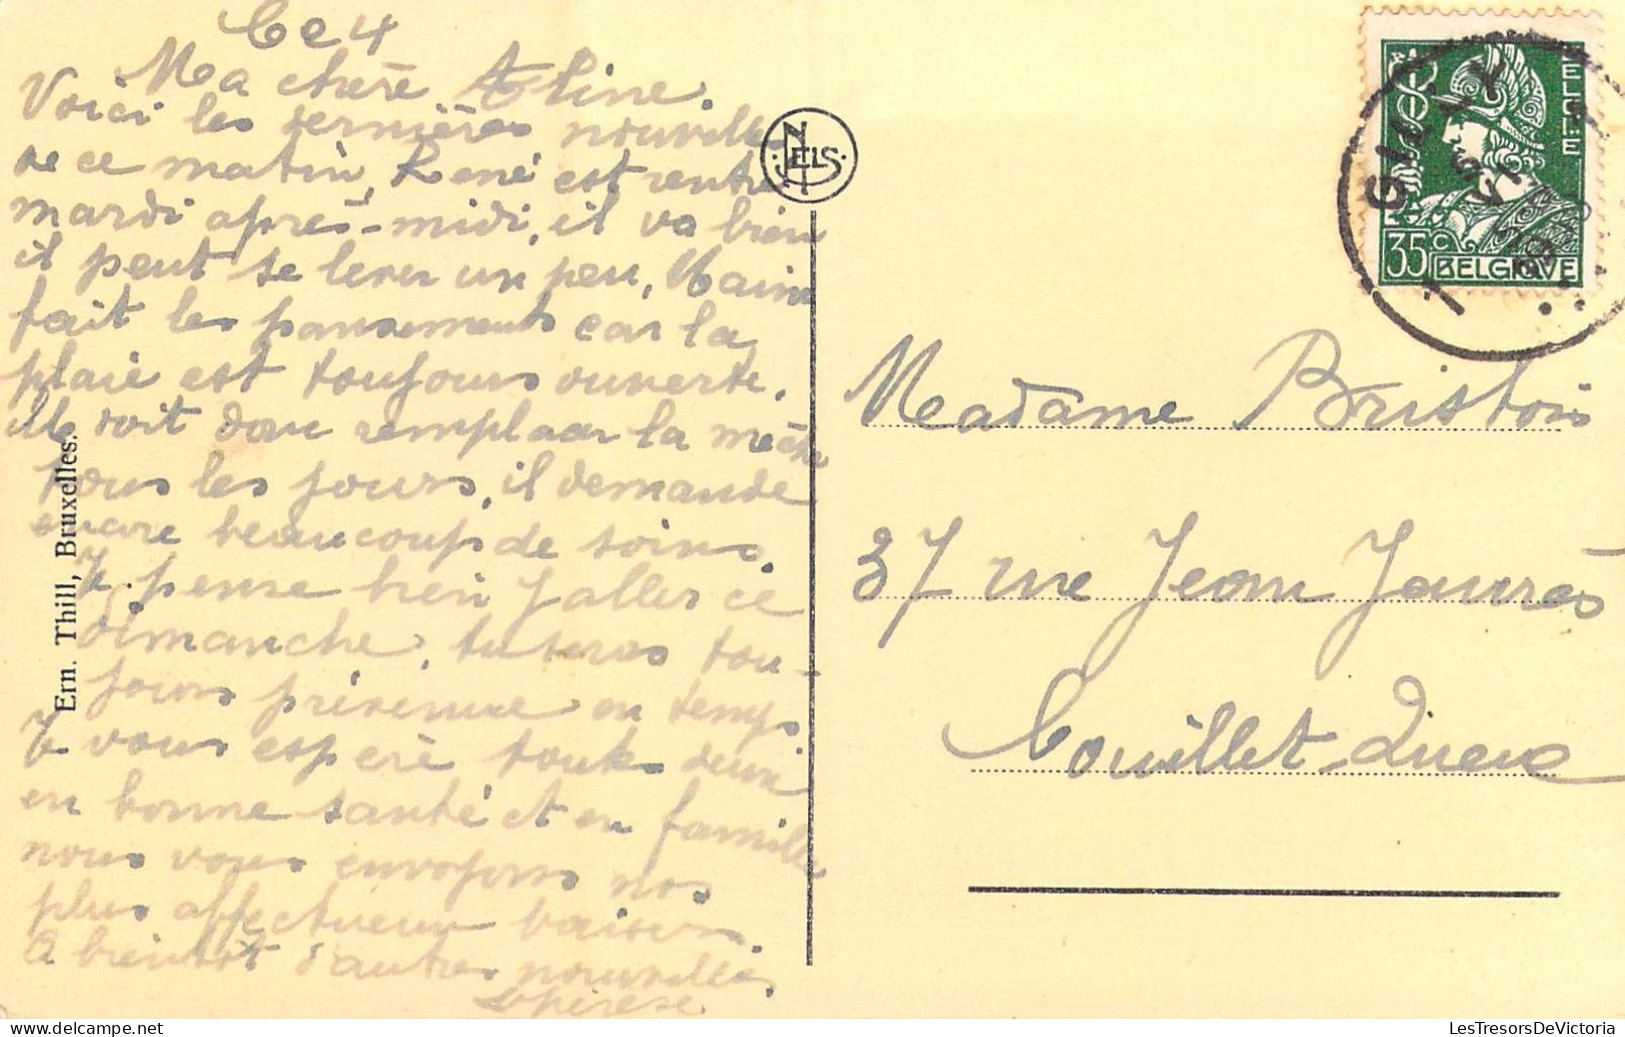 Ce 4
Ma chère Aline.
Voici les dernières nouvelles
de ce matin, René est rentré
mardi après-midi, il va bien
il peut se lever un peu,
fait les pansements car la
plaie est toujours ouverte.
Elle doit donc remplacer la mèche
tous les jours, il demande
encore beaucoup de soins.
Je pense bien y aller ce
dimanche, tu seras tou-
jours prévenue en temps.
Je vous espère toutes deux
en bonne santé et en famille
nous vous envoyons nos
plus affectueux baisers.
A bientôt d'autres nouvelles,
Thérèse.
Ern. Thill, Bruxelles.
NELS
BELGIË
35 c
BELGIQUE
Madame Bristois
37 rue Jean Jaurès
Couillet-Queue
LesTresorsDeVictoria.com